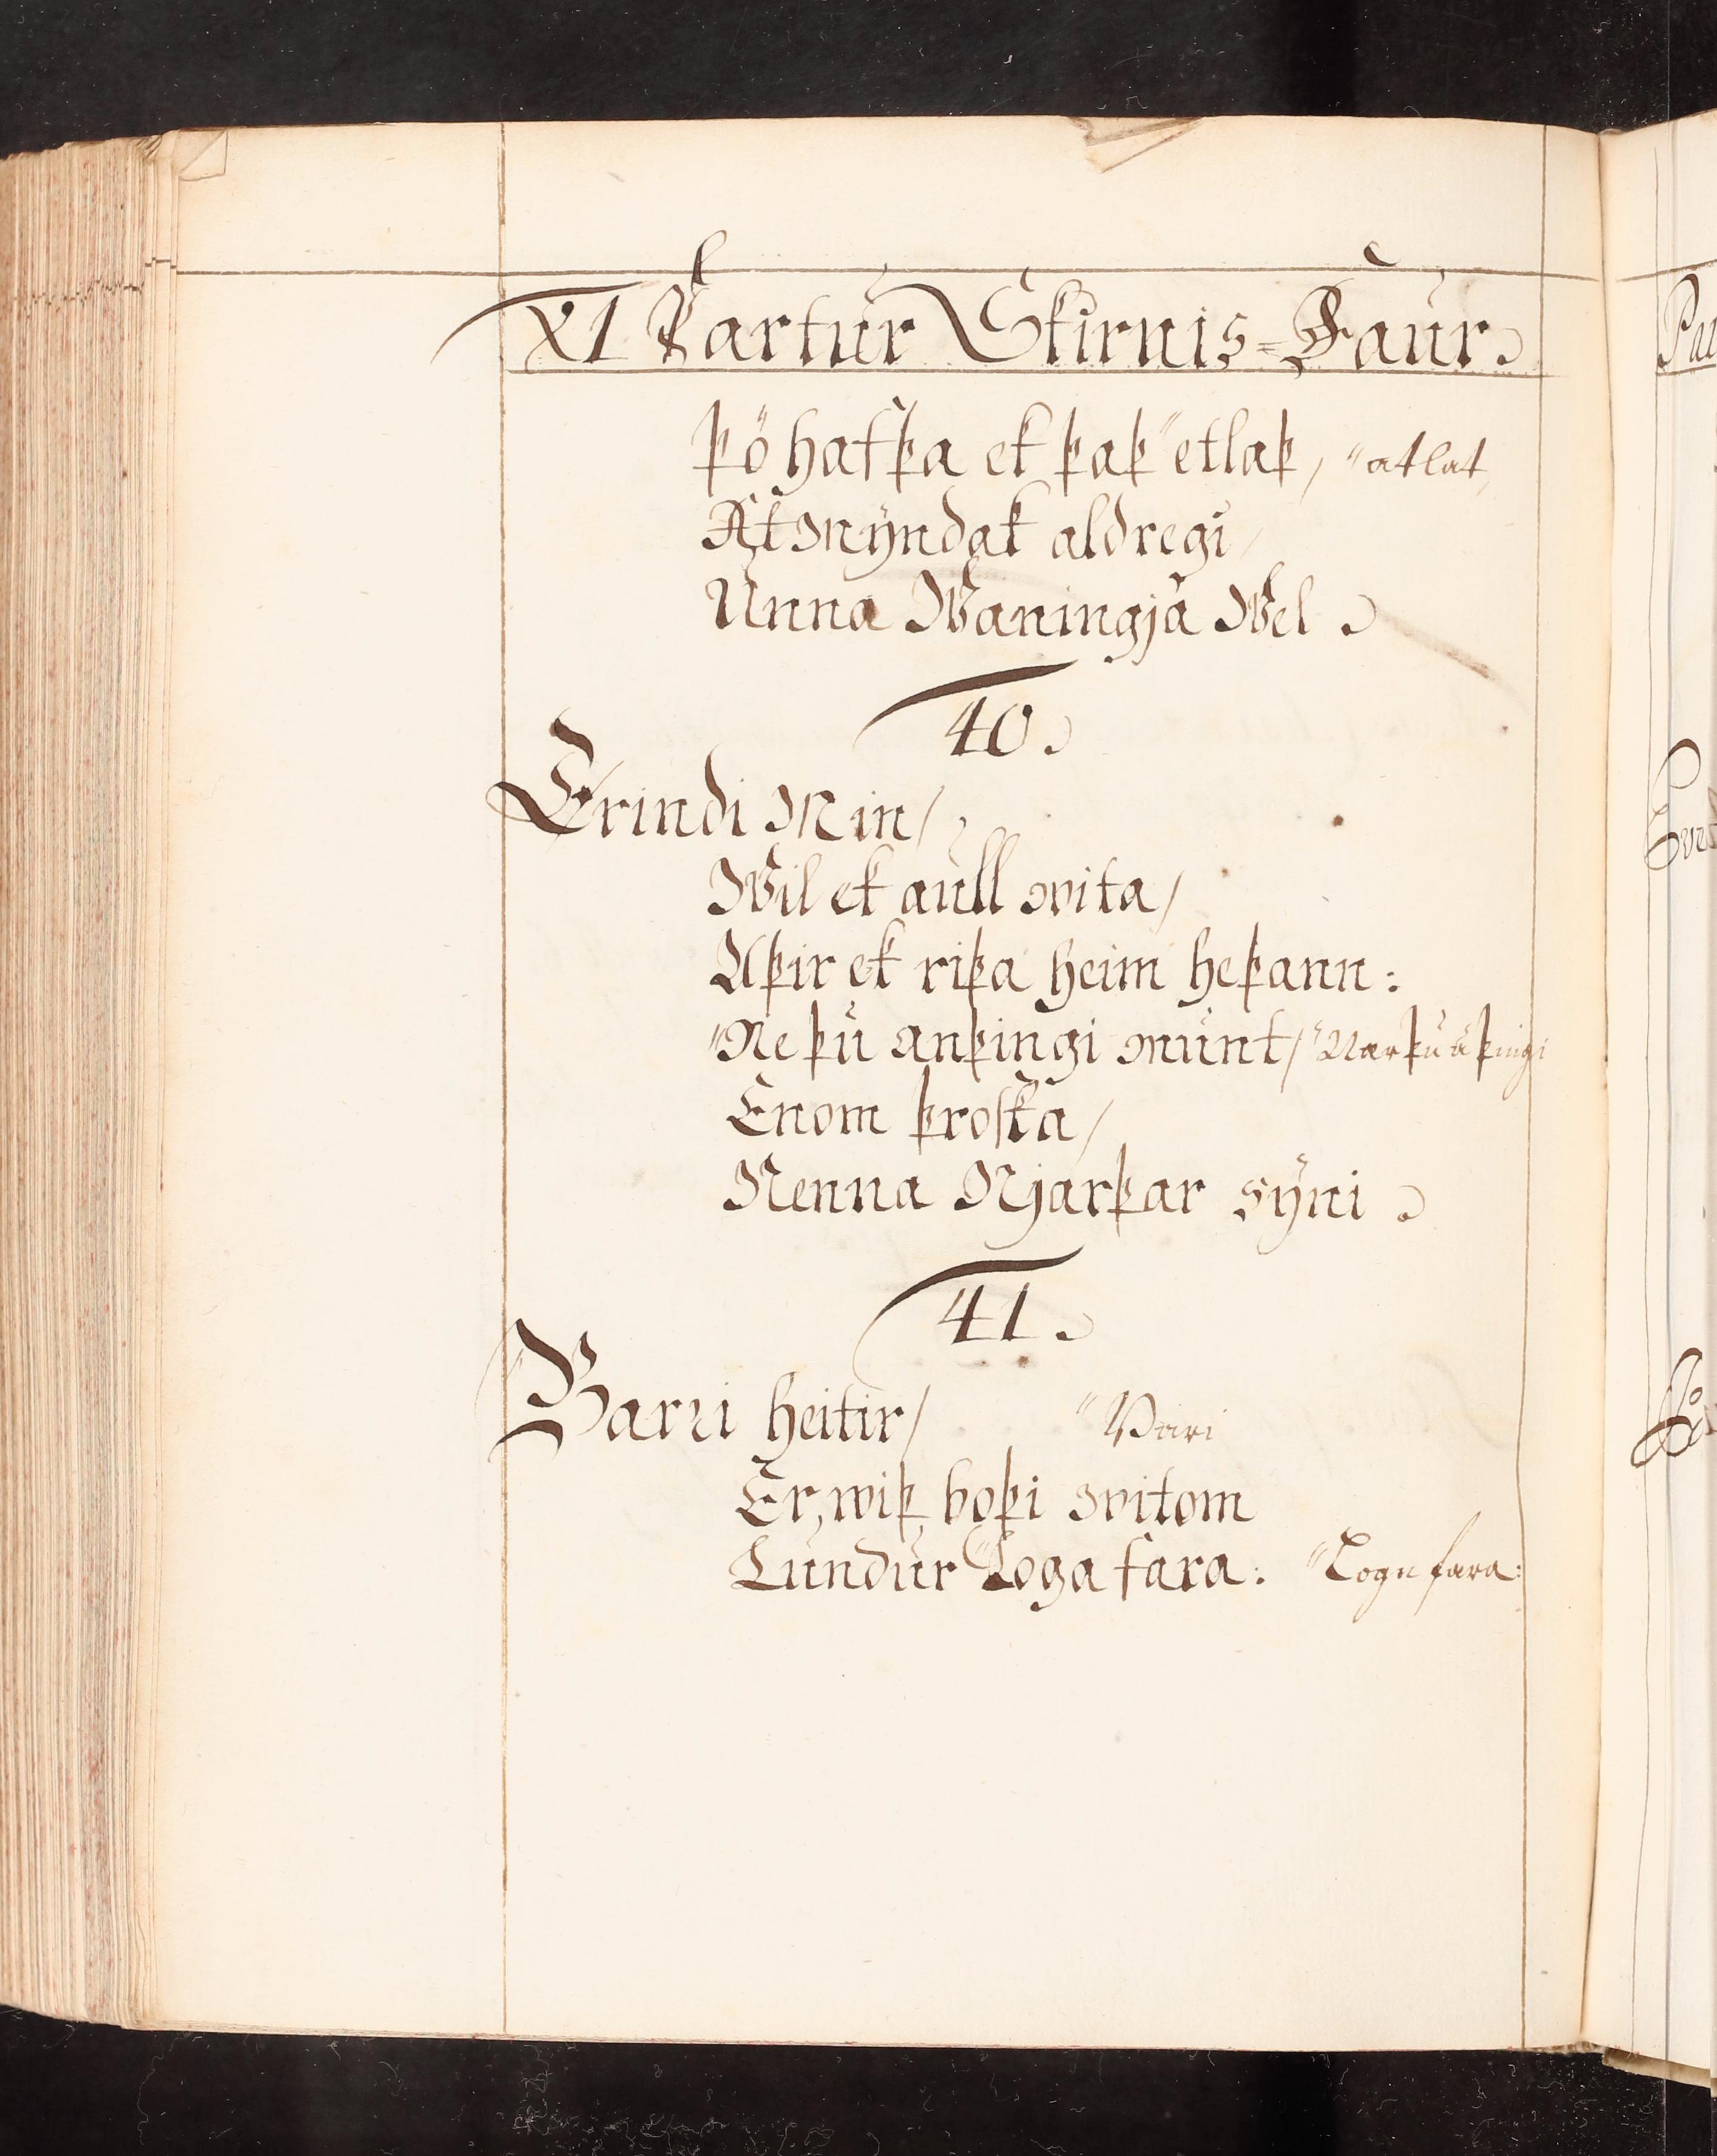 XI Partur Skirnis=Faur.
þö hafþa ek þaþ "etlaþ, "atlat,
At Myndak aldregi
Unna Waningjä Wel.
40.
Erindi Min/
Wil ek aull wita/
Aþir ek riþa heim heþann:
"Ne þü anþingi munt/ "Nær þü a þingi
Enom þroska/
Nenna Njarþar syni.
41.
Barri heitir/ "Vari
Er, wiþ boþi witom
Lundur "Loga fara: "Logn fara: